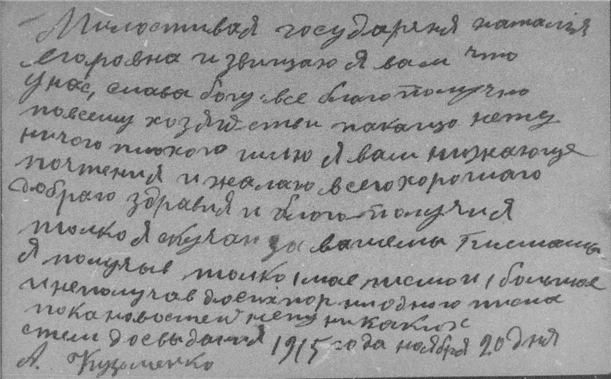 Милостивая государыня наталія
егоровна извищаю я вам что
унас, слава богу все благополучно
повсему хозяйстви покащо нету
ничого плохого шлю я вам нижающе
почтения и жалаю всего хорошаго
доброго здравия и благо-получия
толко я скучаю за вашемы писмамы
я получыв толко 1 мае писмо и 1 болше
инеполучав досих пор ни одного писма
пока новостей нету ни каких
стем досвыдання 1915 года ноября 20 дня
А. Кузоменко